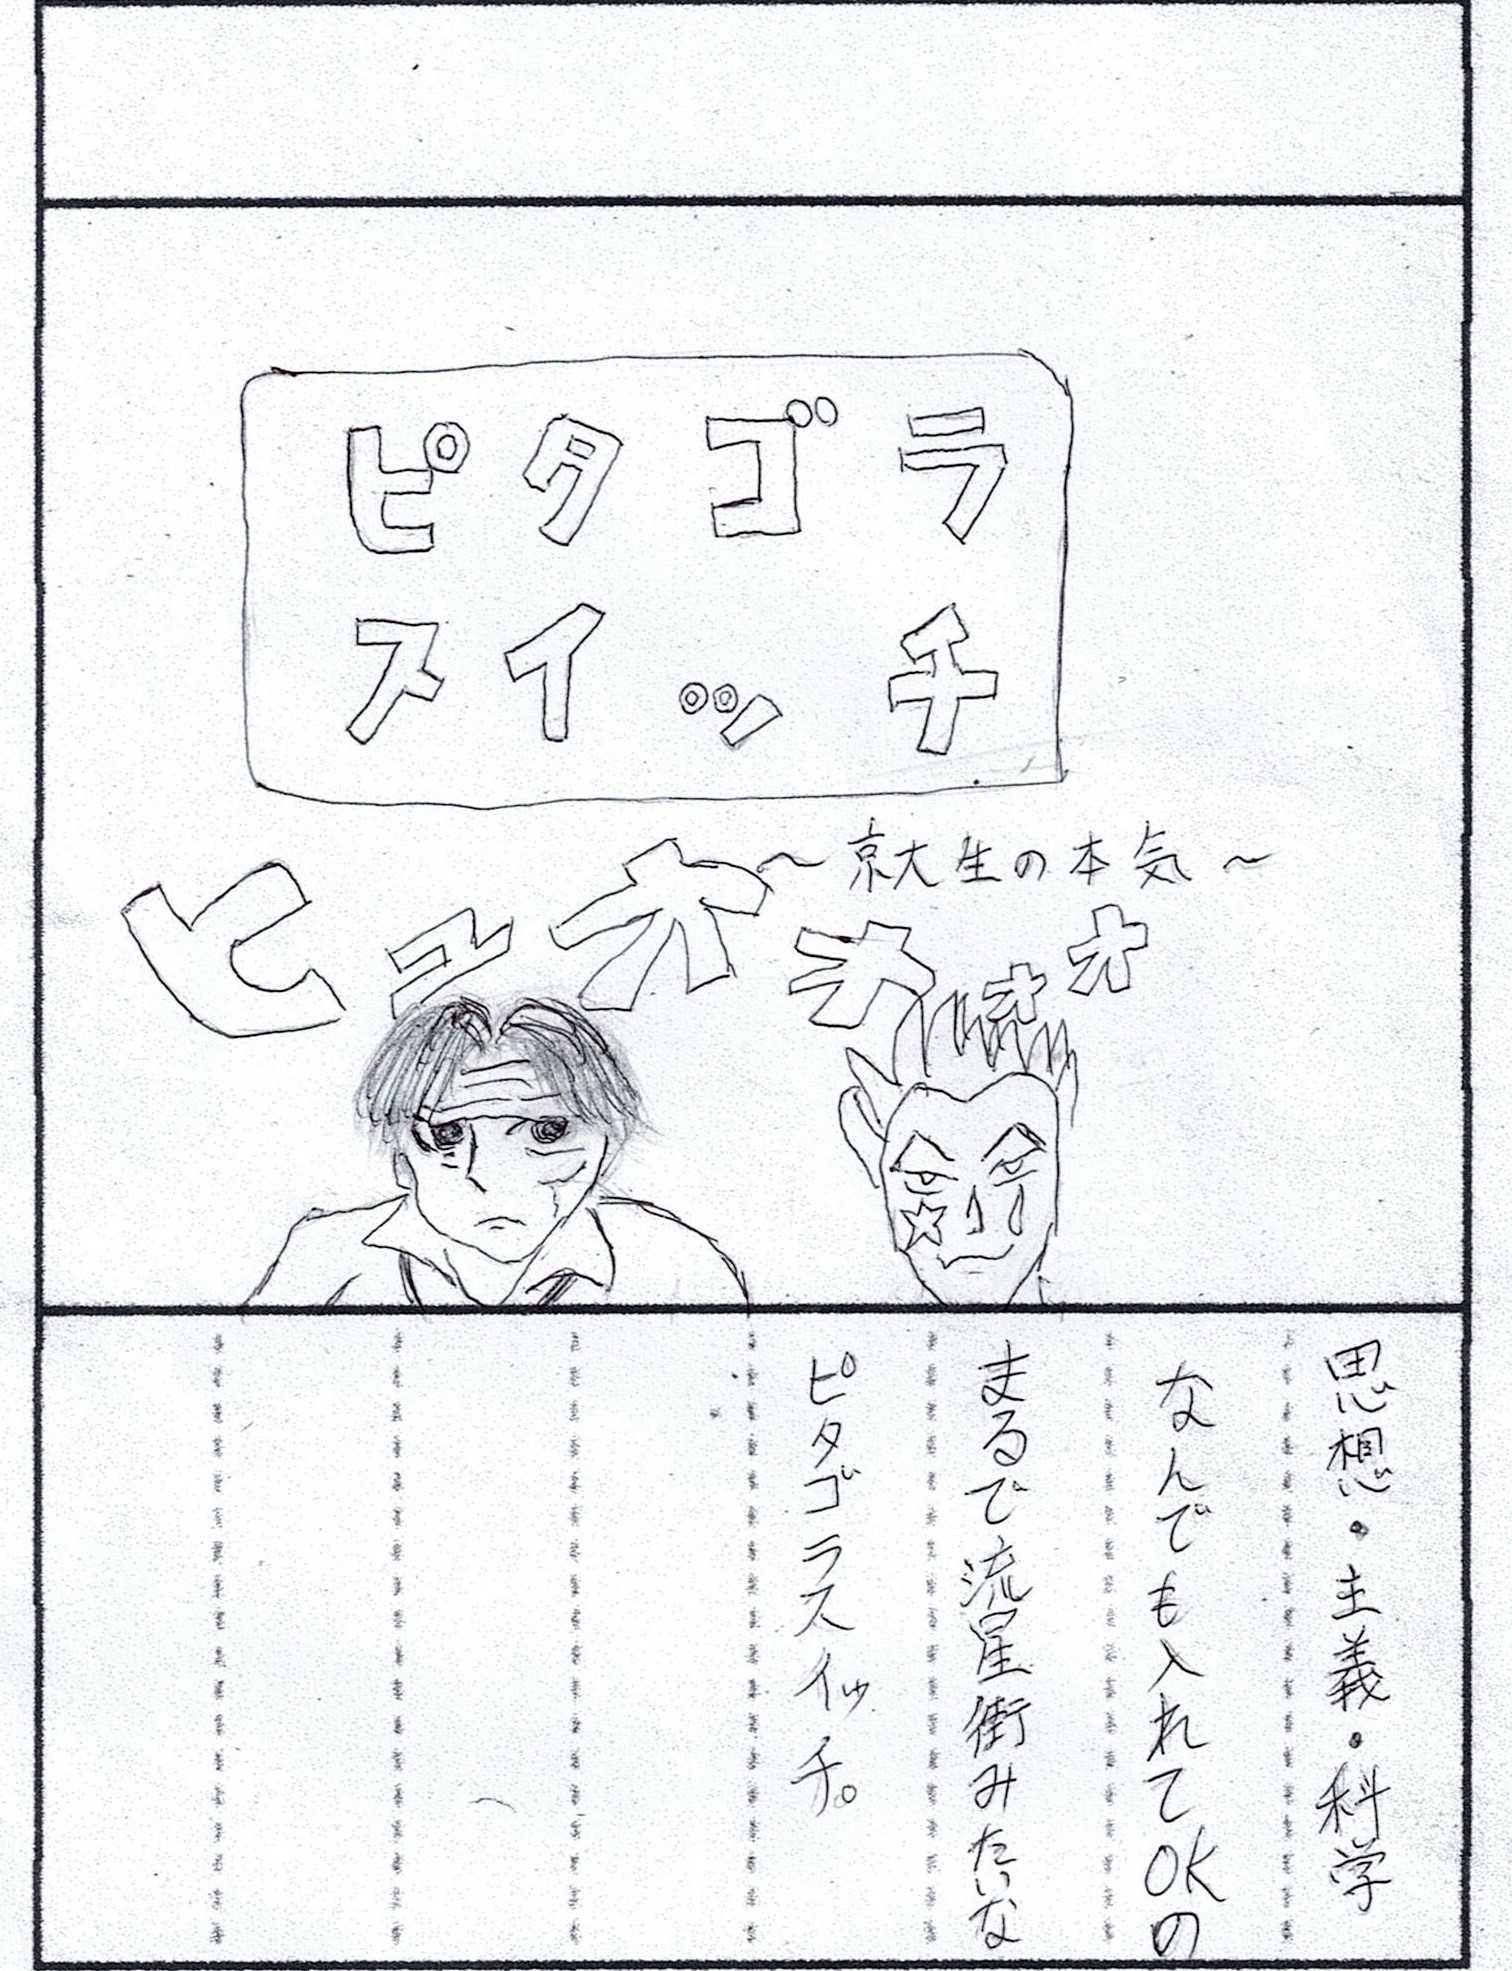 ピタゴラ
スイッチ
～京大生の本気～
ヒュオオオオ
思想・主義・科学
なんでも入れてOKの
まるで流星街みたいな
ピタゴラスイッチ。